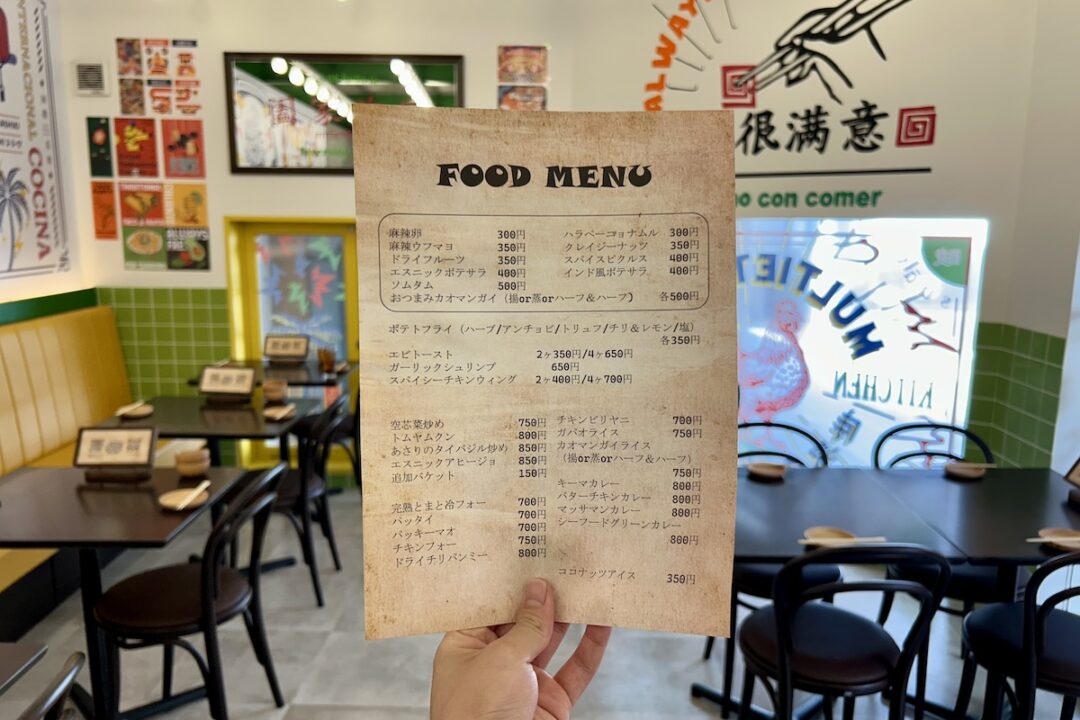 FOOD MENU
麻辣卵 300円
麻辣ウフマヨ 350円
ドライフルーツ 350円
エスニックポテサラ 400円
ソムタム 500円
ハラペーニョナムル 300円
クレイジーナッツ 350円
スパイスピクルス 400円
インド風ポテサラ 400円
おつまみカオマンガイ（揚or蒸orハーフ＆ハーフ） 各500円
ポテトフライ（ハーブ/アンチョビ/トリュフ/チリ＆レモン/塩）
各350円
エビトースト 2ヶ350円/4ヶ650円
ガーリックシュリンプ 650円
スパイシーチキンウィング 2ヶ400円/4ヶ700円
空芯菜炒め 750円
トムヤムクン 800円
あさりのタイバジル炒め 850円
エスニックアヒージョ 850円
追加バケット 150円
完熟とまと冷フォー 700円
パッタイ 700円
パッキーマオ 700円
チキンフォー 750円
ドライチリバンミー 800円
チキンビリヤニ 700円
ガパオライス 750円
カオマンガイライス
（揚or蒸orハーフ＆ハーフ）
750円
キーマカレー 800円
バターチキンカレー 800円
マッサマンカレー 800円
シーフードグリーンカレー
800円
ココナッツアイス 350円
很满意
no con comer
MULTIET
KITCHEN
INTERNACIONAL
COCINA
ALWAY